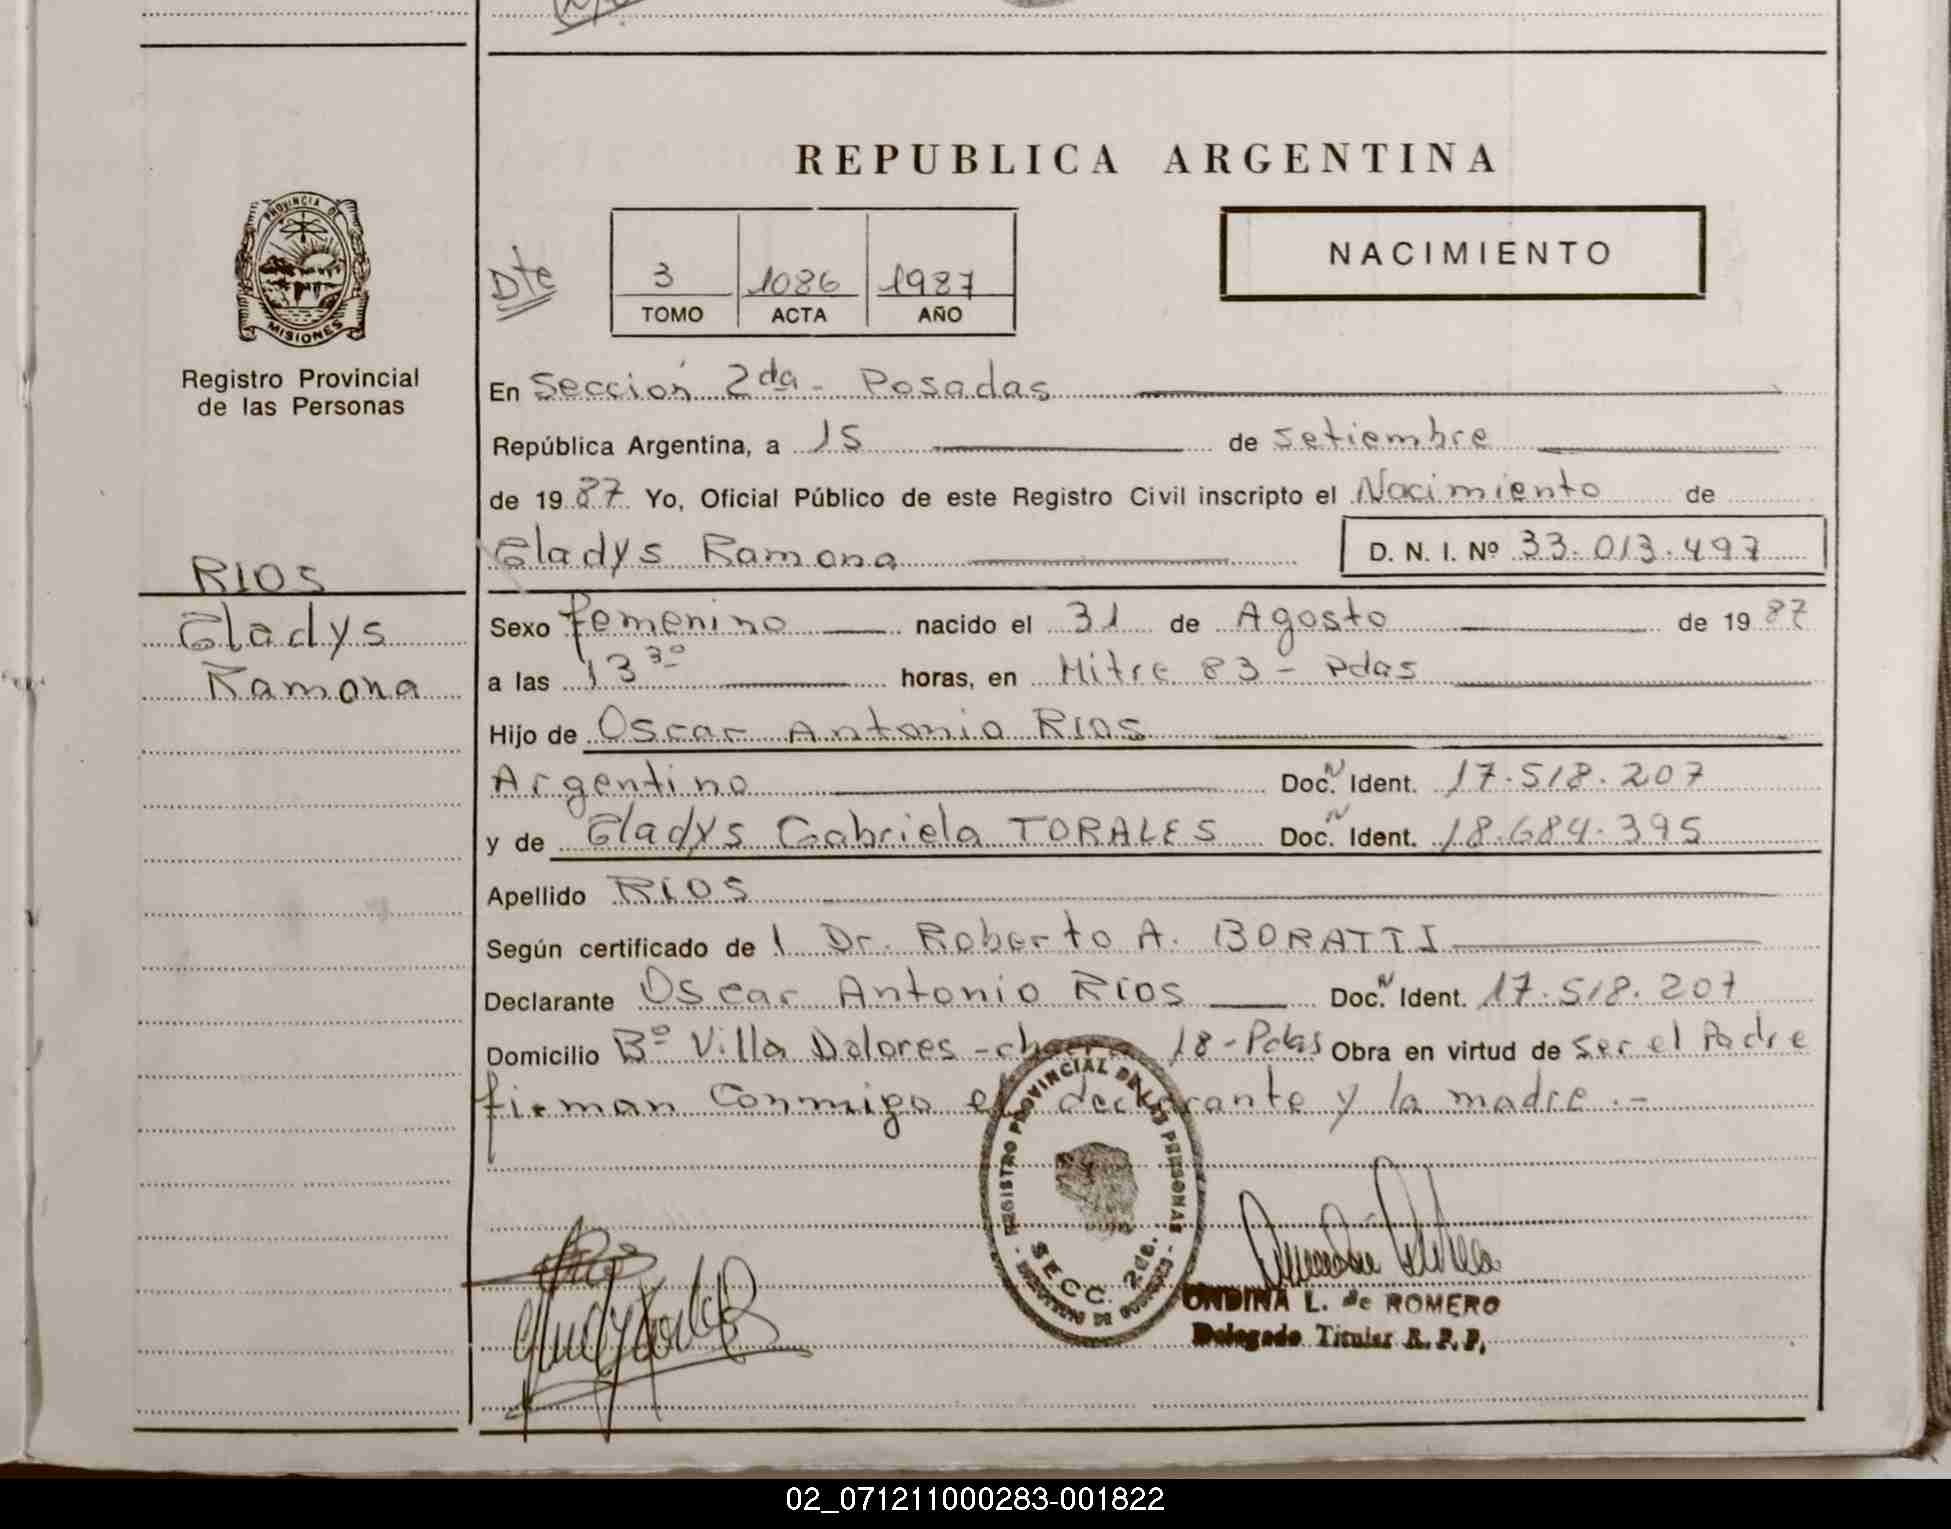 REPUBLICA ARGENTINA
NACIMIENTO
Dte
3 1086 1987
TOMO ACTA AÑO
PROVINCIA DE
MISIONES
Registro Provincial
de las Personas
En Sección 2da - Posadas
República Argentina, a 15 de Setiembre
de 19 87 Yo, Oficial Público de este Registro Civil inscripto el Nacimiento de
Gladys Ramona D. N. I. Nº 33.013.497
RIOS
Gladys
Ramona
Sexo femenino nacido el 31 de Agosto de 19 87
a las 13 30 horas, en Mitre 83 - Pdas
Hijo de Oscar Antonio RIOS
Argentino Doc. N Ident. 17.518.207
y de Gladys Gabriela TORALES Doc. N Ident. 18.684.395
Apellido RIOS
Según certificado de l Dr. Roberto A. BORATTI
Declarante Oscar Antonio Rios Doc. N Ident. 17.518.207
Domicilio Bº Villa Dolores - 18 - Pdas Obra en virtud de Ser el Padre
firman Conmigo el declarante y la madre . -
REGISTRO PROVINCIAL DE LAS PERSONAS
SECC. 2da.
ONDINA L. de ROMERO
Delegado Titular R. P. P.
02_071211000283-001822